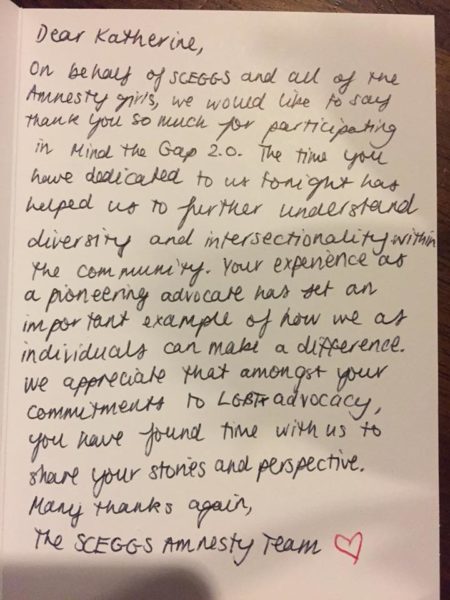 Dear Katherine,
On behalf of SCEGGS and all of the
Amnesty girls, we would like to say
thank you so much for participating
in Mind the Gap 2.0. The time you
have dedicated to us tonight has
helped us to further understand
diversity and intersectionality within
the community. Your experience as
a pioneering advocate has set an
important example of how we as
individuals can make a difference.
We appreciate that amongst your
commitments to LGBTI advocacy,
you have found time with us to
share your stories and perspective.
Many thanks again,
The SCEGGS Amnesty Team